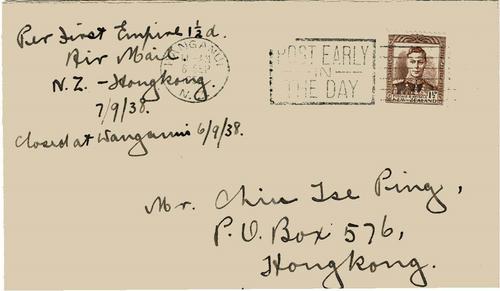 Per First Empire 1½d.
Air Mail
N.Z. - Hongkong.
7/9/38.
Closed at Wanganui 6/9/38.
WANGANUI
N.Z.
POST EARLY
IN
THE DAY
1½D
NEW ZEALAND
Mr. Chiu Tse Ping,
P.O. Box 576,
Hongkong.